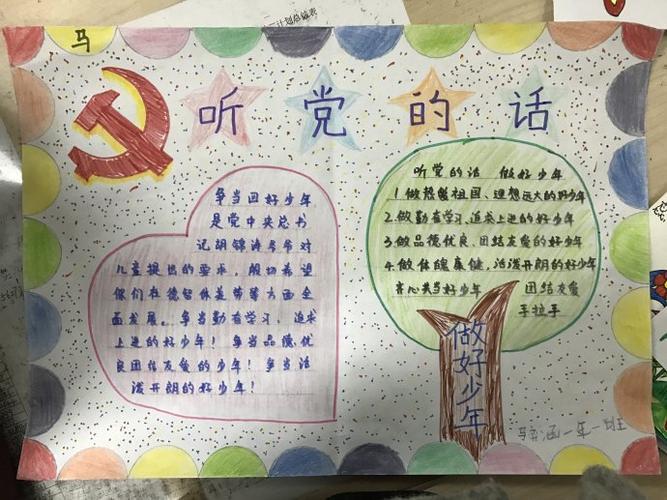 计划总结表
马
听党的话
争当四好少年
是党中央总书
记胡锦涛爷爷对
儿童提出的要求，殷切希望
你们在德智体美劳等方面全
面发展。争当勤奋学习、追求
上进的好少年！争当品德优
良团结友爱的少年！争当活
泼开朗的好少年！
听党的话 做好少年
1.做热爱祖国、理想远大的好少年
2.做勤奋学习、追求上进的好少年
3.做品德优良、团结友爱的好少年
4.做体魄康健、活泼开朗的好少年
齐心共当好少年 团结友爱
手拉手
做好少年
涵一年一班